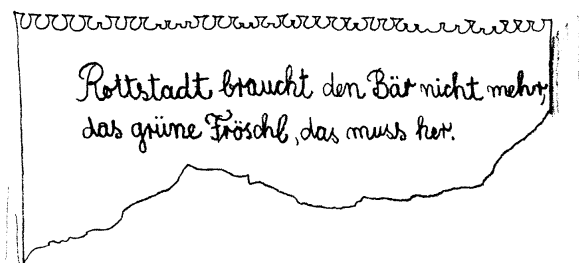 Rottstadt braucht den Bär nicht mehr,
das grüne Fröschl, das muss her.